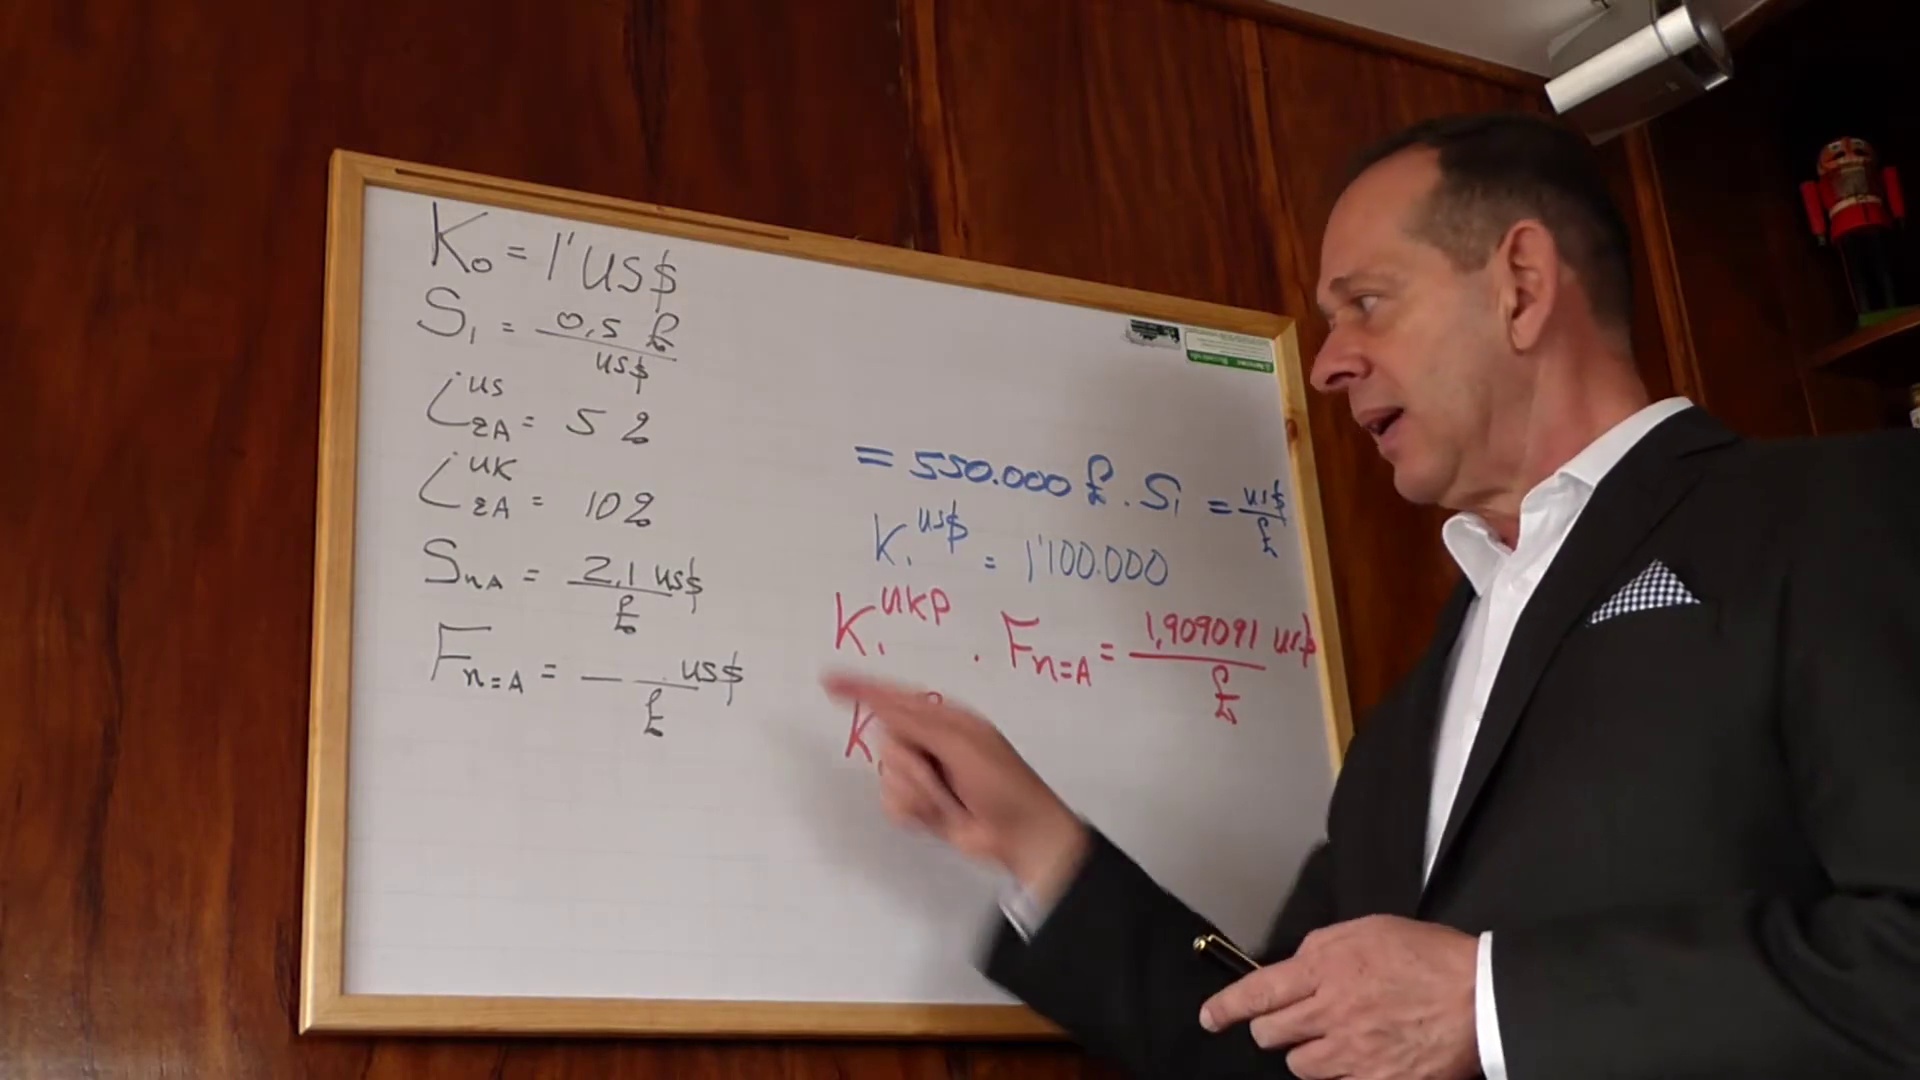 K₀ = 1' US$
S₁ = 0,5 £ / US$
i US ZA = 5 %
i UK ZA = 10 %
S nA = 2,1 US$ / £
F n=A = — . US$ / £
= 550.000 £ . S₁ = US$ / £
K₁ US$ = 1'100.000
K₁ UKP . F n=A = 1,909091 US$ / £
K